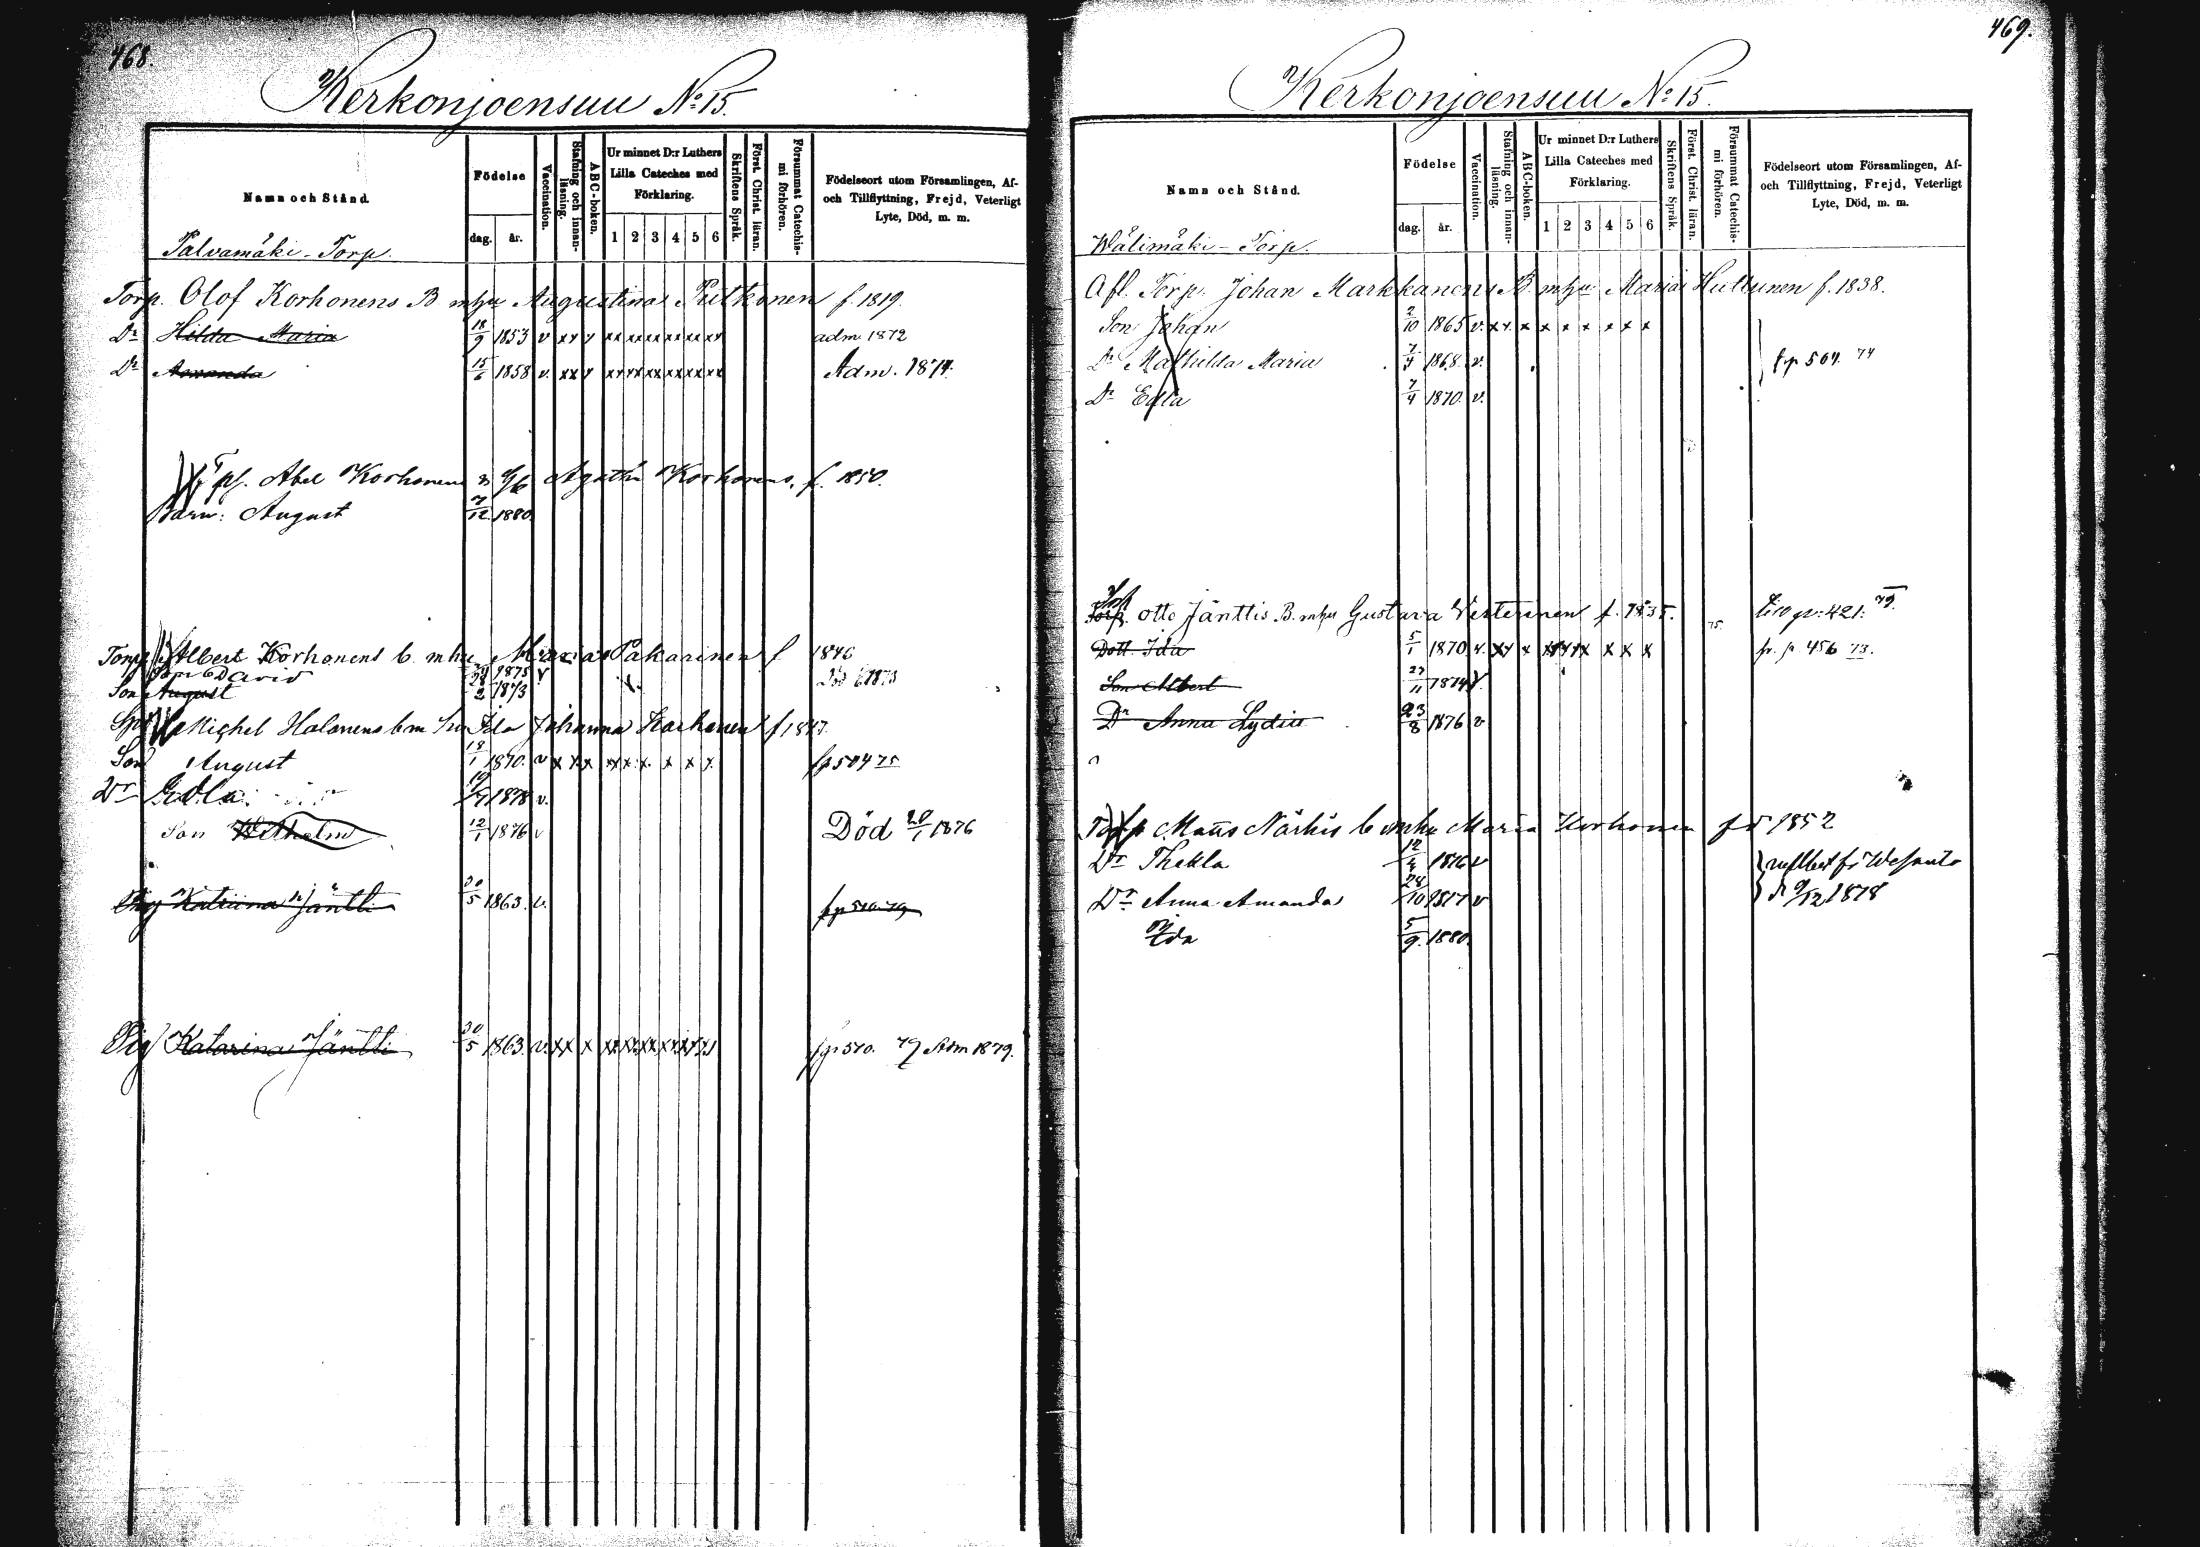 468.
Kerkonjoensuu No: 15.
Namn och Stånd.
Födelse
dag.
år.
Vaccination.
Stafning och innanläsning.
ABC-boken.
Ur minnet D:r Luthers Lilla Cateches med Förklaring.
1 2 3 4 5 6
Skriftens Språk.
Först. Christ. läran.
Försummat Catechismi förhören.
Födelseort utom Församlingen, Af- och Tillflyttning, Frejd, Veterligt Lyte, Död, m. m.
Palvamäki - Torp.
Torp. Olof Korhonens B mhu Augustina Putkonen f. 1819.
Dr Hilda Maria 18/9 1853 v xx x xx xx xx xx xx xx adm 1872
Dr Amanda 15/6 1858 v. xx x xx xx xx xx xx xx Adm. 1874.
Abel Korhonens Agatha Korhonens, f. 1850.
Barn: August 7/12 1880.
Torp Albert Korhonens b. mhu Maria Pakarinen f 1846
Son David 1875 v
Son August 2 1873
Michel Halonens b m hu Ida Johanna Korhonen f 1847.
Son August 18/1 1870. v x x x xx x x x x x fp 504 75
Dr Edla 1878 v.
Son Wilhelm 12/1 1876 v Död 20/1 1876
Pig Katriina Jäntti 30/5 1863. v. fp 510 79
Pig Katarina Jäntti 30/5 1863. v. xx x xx xx xx xx xx xx fp 510. 79 Adm 1879.
469.
Kerkonjoensuu No: 15.
Namn och Stånd.
Födelse
dag.
år.
Vaccination.
Stafning och innanläsning.
ABC-boken.
Ur minnet D:r Luthers Lilla Cateches med Förklaring.
1 2 3 4 5 6
Skriftens Språk.
Först. Christ. läran.
Försummat Catechismi förhören.
Födelseort utom Församlingen, Af- och Tillflyttning, Frejd, Veterligt Lyte, Död, m. m.
Wälimäki - Torp.
Afl. Torp. Johan Markkanens B. mhu Maria Huttunen f. 1838.
Son Johan 2/10 1865 v. x x x x x x x x x
Dr Mathilda Maria 1868. v. fp 504. 74
Dr Edla 7/4 1870. v.
Torp. Otto Jänttis B. mhu Gustava Vesterinen f. 1835. till p: 421: 79.
Dott Ida 5/1 1870 v. xx x xx xx x x x x fr. p 456 73.
Son Albert 27/11 1874 v.
Dr Anna Lydia 23/8 1876 v
Torp Mans Närhis b mhu Maria Korhonen fd 1852
Dr Thekla 12/4 1876 v
Dr Anna Amanda 28/10 1877 v d 9/12 1878
Ida 5/9. 1880.